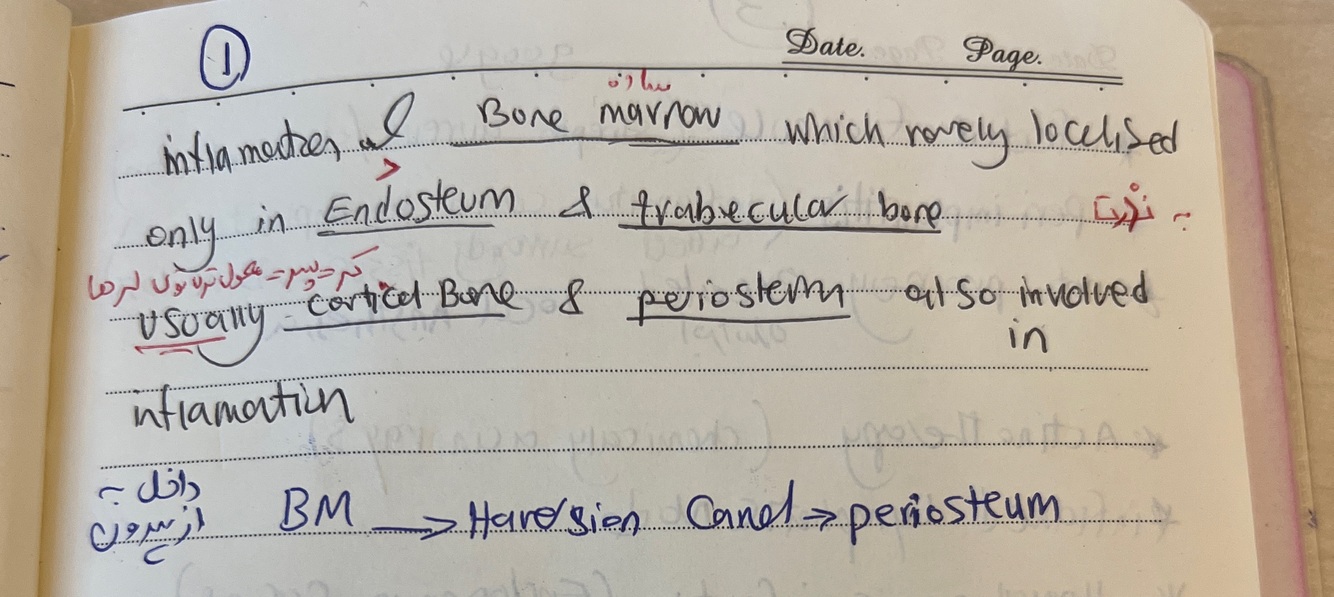 ①
Date. Page.
inflamation of Bone marrow which rarely localised
only in Endosteum & trabecular bone
usually cortical Bone & periosteum also involved
in
inflamation
داخل
از بیرون BM → Haversion Canal → periosteum